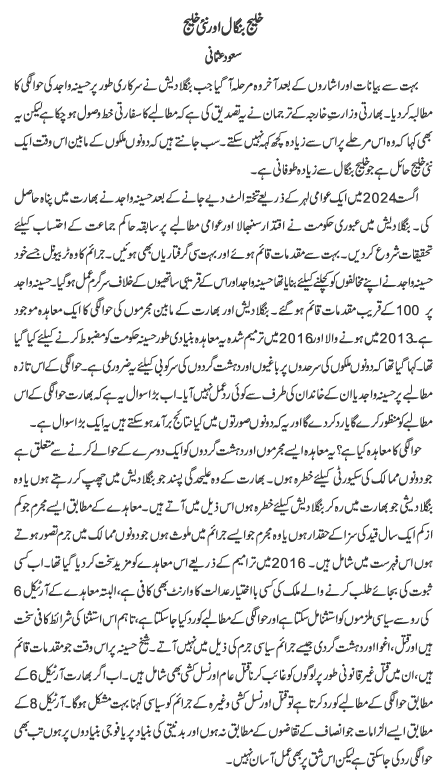 خلیج بنگال اور نئی خلیج
سعود عثمانی
بہت سے بیانات اور اشاروں کے بعد آخر وہ مرحلہ آ گیا جب بنگلا دیش نے سرکاری طور پر حسینہ واجد کی حوالگی کا
مطالبہ کر دیا۔ بھارتی وزارتِ خارجہ کے ترجمان نے یہ تصدیق کی ہے کہ مطالبے کا سفارتی خط وصول ہو چکا ہے لیکن یہ
بھی کہا کہ وہ اس مرحلے پر اس سے زیادہ کچھ کہہ نہیں سکتے۔ سب جانتے ہیں کہ دونوں ملکوں کے مابین اس وقت ایک
نئی خلیج حائل ہے جو خلیج بنگال سے زیادہ طوفانی ہے۔
اگست 2024 میں ایک عوامی لہر کے ذریعے تختہ الٹ دیے جانے کے بعد حسینہ واجد نے بھارت میں پناہ حاصل
کی۔ بنگلا دیش میں عبوری حکومت نے اقتدار سنبھالا اور عوامی مطالبے پر سابقہ حاکم جماعت کے احتساب کیلئے
تحقیقات شروع کر دیں۔ بہت سے مقدمات قائم ہوئے اور بہت سی گرفتاریاں بھی ہوئیں۔ جرائم کا وہ ٹربیونل جسے خود
حسینہ واجد نے اپنے مخالفوں کو کچلنے کیلئے بنایا تھا حسینہ واجد اور اس کے قریبی ساتھیوں کے خلاف سرگرم عمل ہو گیا۔ حسینہ واجد
پر 100 کے قریب مقدمات قائم ہو گئے۔ بنگلا دیش اور بھارت کے مابین مجرموں کی حوالگی کا ایک معاہدہ موجود
ہے۔ 2013 میں ہونے والا اور 2016 میں ترمیم شدہ یہ معاہدہ بنیادی طور حسینہ حکومت کو مضبوط کرنے کیلئے کیا گیا
تھا۔ کہا گیا تھا کہ دونوں ملکوں کی سرحدوں پر باغیوں اور دہشت گردوں کی سرکوبی کیلئے یہ ضروری ہے۔ حوالگی کے اس تازہ
مطالبے پر حسینہ واجد یا ان کے خاندان کی طرف سے کوئی ردِعمل نہیں آیا۔ اب بڑا سوال یہ ہے کہ بھارت حوالگی کے اس
مطالبے کو منظور کرے گا یا رد کر دے گا اور یہ کہ دونوں صورتوں میں کیا نتائج برآمد ہو سکتے ہیں یہ ایک بڑا سوال ہے۔
حوالگی کا معاہدہ کیا ہے؟ یہ معاہدہ ایسے مجرموں اور دہشت گردوں کو ایک دوسرے کے حوالے کرنے سے متعلق ہے
جو دونوں ممالک کی سکیورٹی کیلئے خطرہ ہوں۔ بھارت کے وہ علیحدگی پسند جو بنگلا دیش میں چھپ کر رہتے ہوں یا وہ
بنگلا دیشی جو بھارت میں رہ کر بنگلا دیش کیلئے خطرہ ہوں اس ذیل میں آتے ہیں۔ معاہدے کے مطابق ایسے مجرم جو کم
از کم ایک سال قید کی سزا کے حقدار ہوں یا وہ مجرم جو ایسے جرائم میں ملوث ہوں جو دونوں ممالک میں جرم تصور ہوتے
ہوں اس فہرست میں شامل ہیں۔ 2016 میں ترامیم کے ذریعے اس معاہدے کو مزید سخت کر دیا گیا تھا۔ اب کسی
ثبوت کی بجائے طلب کرنے والے ملک کی کسی بااختیار عدالت کا وارنٹ بھی کافی ہے، البتہ معاہدے کے آرٹیکل 6
کی رو سے سیاسی ملزموں کو استثنا مل سکتا ہے اور حوالگی کے مطالبے کو رد کیا جا سکتا ہے، تاہم اس استثنا کی شرائط کافی سخت
ہیں اور قتل، اغوا اور دہشت گردی جیسے جرائم سیاسی جرم کی ذیل میں نہیں آتے۔ شیخ حسینہ پر اس وقت جو مقدمات قائم
ہیں، ان میں قتل غیر قانونی طور پر لوگوں کو غائب کرنا قتل عام اور نسل کشی بھی شامل ہیں۔ اب اگر بھارت آرٹیکل 6 کے
مطابق حوالگی کے مطالبے کو رد کرتا ہے تو قتل اور نسل کشی وغیرہ کے جرائم کو سیاسی کہنا بہت مشکل ہو گا۔ آرٹیکل 8 کے
مطابق ایسے الزامات جو انصاف کے تقاضوں کے مطابق نہ ہوں اور بدنیتی کی بنیاد پر یا فوجی بنیادوں پر ہوں تب بھی
حوالگی رد کی جا سکتی ہے لیکن اس شق پر بھی عمل آسان نہیں۔